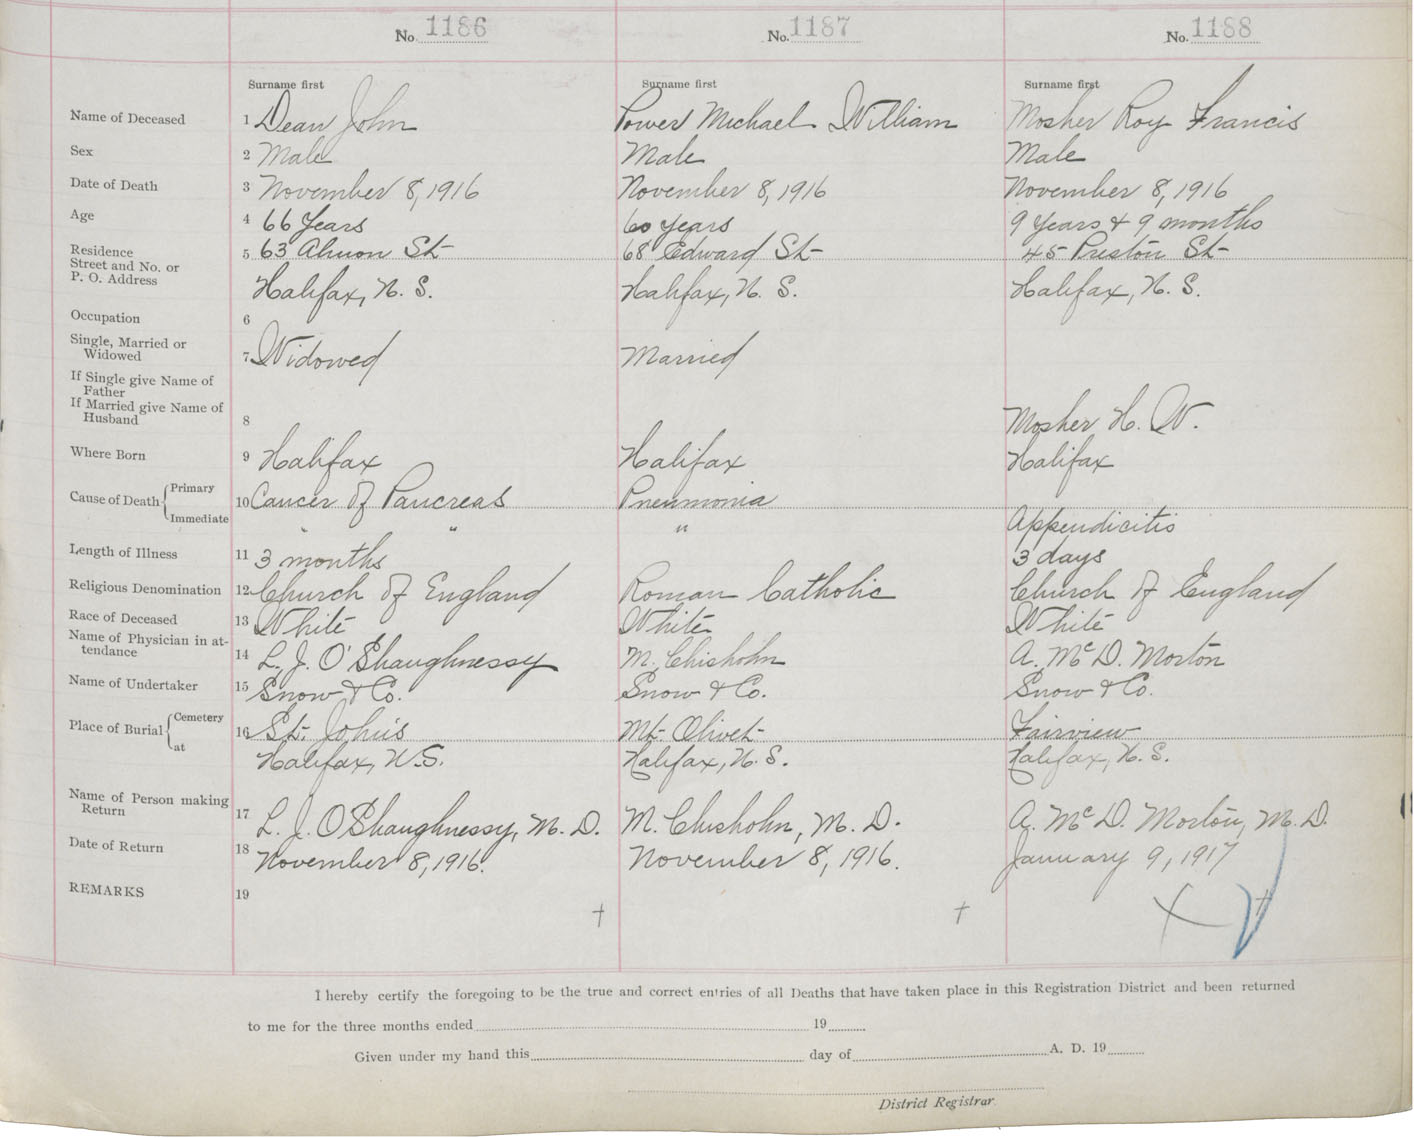 No. 1186 No. 1187 No. 1188
Surname first Surname first Surname first
Name of Deceased 1 Dean John Power Michael William Mosher Roy Francis
Sex 2 Male Male Male
Date of Death 3 November 8, 1916 November 8, 1916 November 8, 1916
Age 4 66 Years 60 years 9 Years & 9 months
Residence
Street and No. or 5 63 Almon St 68 Edward St 45 Preston St
P. O. Address Halifax, N. S. Halifax, N. S. Halifax, N. S.
Occupation 6
Single, Married or
Widowed 7 Widowed Married
If Single give Name of
Father
If Married give Name of
Husband 8 Mosher H. W.
Where Born 9 Halifax Halifax Halifax
Cause of Death Primary 10 Cancer of Pancreas Pneumonia
Immediate " " " Appendicitis
Length of Illness 11 3 months 3 days
Religious Denomination 12 Church of England Roman Catholic Church of England
Race of Deceased 13 White White White
Name of Physician in at-
tendance 14 L. J. O'Shaughnessy M. Chisholm A. McD. Morton
Name of Undertaker 15 Snow & Co. Snow & Co. Snow & Co.
Place of Burial Cemetery 16 St. John's Mt. Olivet Fairview
at Halifax, N.S. Halifax, N. S. Halifax, N. S.
Name of Person making
Return 17 L. J. O'Shaughnessy, M. D. M. Chisholm, M. D. A. McD. Morton, M. D.
Date of Return 18 November 8, 1916. November 8, 1916. January 9, 1917
REMARKS 19
I hereby certify the foregoing to be the true and correct entries of all Deaths that have taken place in this Registration District and been returned
to me for the three months ended 19
Given under my hand this day of A. D. 19
District Registrar.